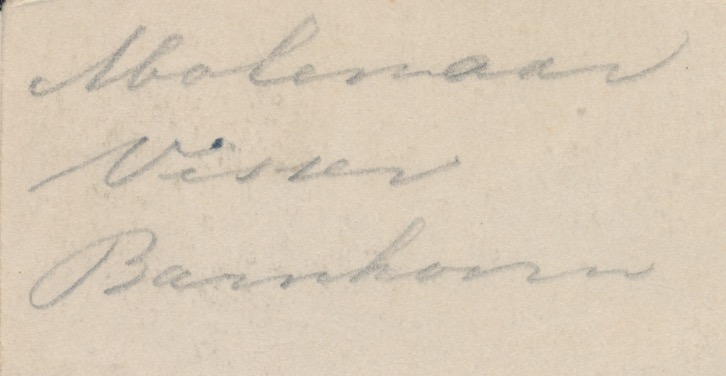 Molenaar
Visser
Barnhoorn